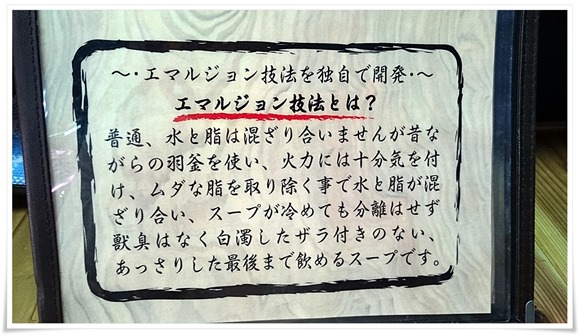 〜・エマルジョン技法を独自で開発・〜
エマルジョン技法とは？
普通、水と脂は混ざり合いませんが昔な
がらの羽釜を使い、火力には十分気を付
け、ムダな脂を取り除く事で水と脂が混
ざり合い、スープが冷めても分離はせず
獣臭はなく白濁したザラ付きのない、
あっさりした最後まで飲めるスープです。